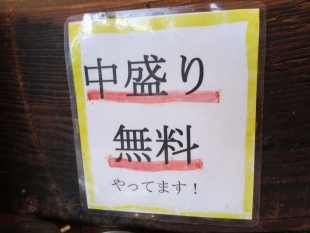 中盛り
無料
やってます!